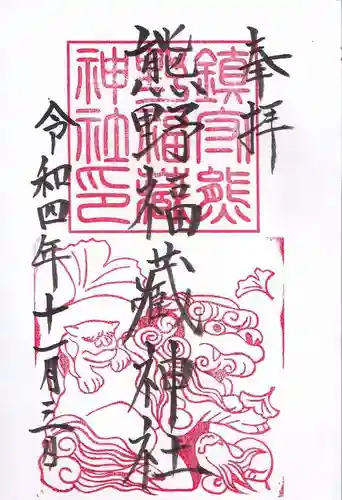 奉拝
熊野福藏神社
令和四年十一月三日
鎮守熊
野福藏
神社印